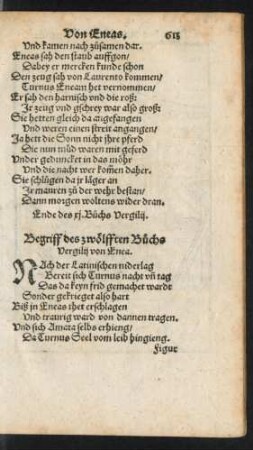 Von Eneas. 618
Vnd kamen nach züsamen dar.
Eneas sah den staub auffgon/
Dabey er mercken kunde schon
Den zeug sah von Laurento kommen/
Turnus Eneam het vernommen/
Er sah den harnisch vnd die roß:
Je zeug vnd gschrey war also groß:
Sie hetten gleich da angefangen
Vnd weren einen streit angangen/
Ja hett die Sonn nicht jhre pferd
Die nun müd waren mit geferd
Vnder geduncket in das möhr
Vnd die nacht wer kom̃en daher.
Sie schlügen da jr läger an
Jr mauren zů der wehr bestan/
Dann morgen woltens wider dran.
Ende des xj. Bůchs Vergilij.
Begriff des zwölfften Bůchs
Vergilij von Enea.
NAch der Latinischen niderlag
Bereit sich Turnus nacht vñ tag
Das da keyn frid gemachet wardt
Sonder gekrieget also hart
Biß jn Eneas thet erschlagen
Vnd traurig ward von dannen tragen.
Vnd sich Amata selbs erhieng/
Da Turnus Seel vom leib hingieng.
Figur